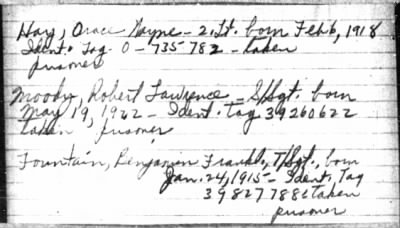 Hay, Orace Wayne - 2.Lt. born Feb 6, 1918
Ident. Tag O - 735782 - taken
prisoner
Moody, Robert Lawrence - S/Sgt. born
May 19, 1922 - Ident. Tag 39260622
taken prisoner
Fountain, Benjamin Frankl., T/Sgt., born
Jan. 24, 1915 - Ident, Tag
39827788 taken
prisoner